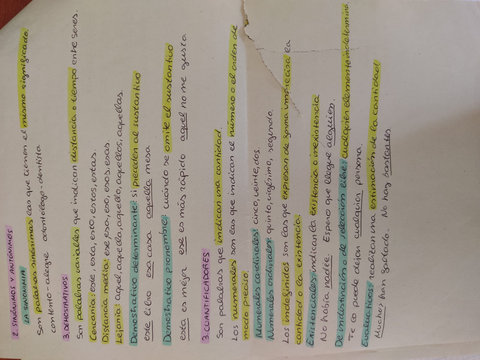 2. SINÓNIMOS Y ANTÓNIMOS
LA SINONIMIA
Son palabras sinónimas las que tienen el mismo significado
contento-alegre odontólogo-dentista
3. DEMOSTRATIVOS
Son palabras variables que indican distancia o tiempo entre seres.
Cercanía: esta, esto, estos, estas
Distancia media: ese, esa, eso, esos, esas
Lejanía: aquel, aquella, aquello, aquellos, aquellas
Demostrativo determinante: si preceden al sustantivo
este libro esa casa aquella mesa
Demostrativo pronombre: cuando se omite el sustantivo
esta es mejor ese es más rápido aquel no me gusta
3 CUANTIFICADORES
Son palabras que indican una cantidad.
Los numerales son las que indican el número o el orden de
modo preciso
Numerales cardinales: cinco, veinte, dos
Numerales ordinales: quinto, vigésimo, segundo
Los indefinidos son las que expresan de forma imprecisa la
cantidad o la existencia
Existenciales: indican la existencia o inexistencia
No había nadie Espero que llegue alguien.
De indistinción o de elección libre: cualquier elemento
Te lo puede dejar cualquier persona
Evaluativos: realizan una estimación de la cantidad
Muchos han gastado. No hay bastantes